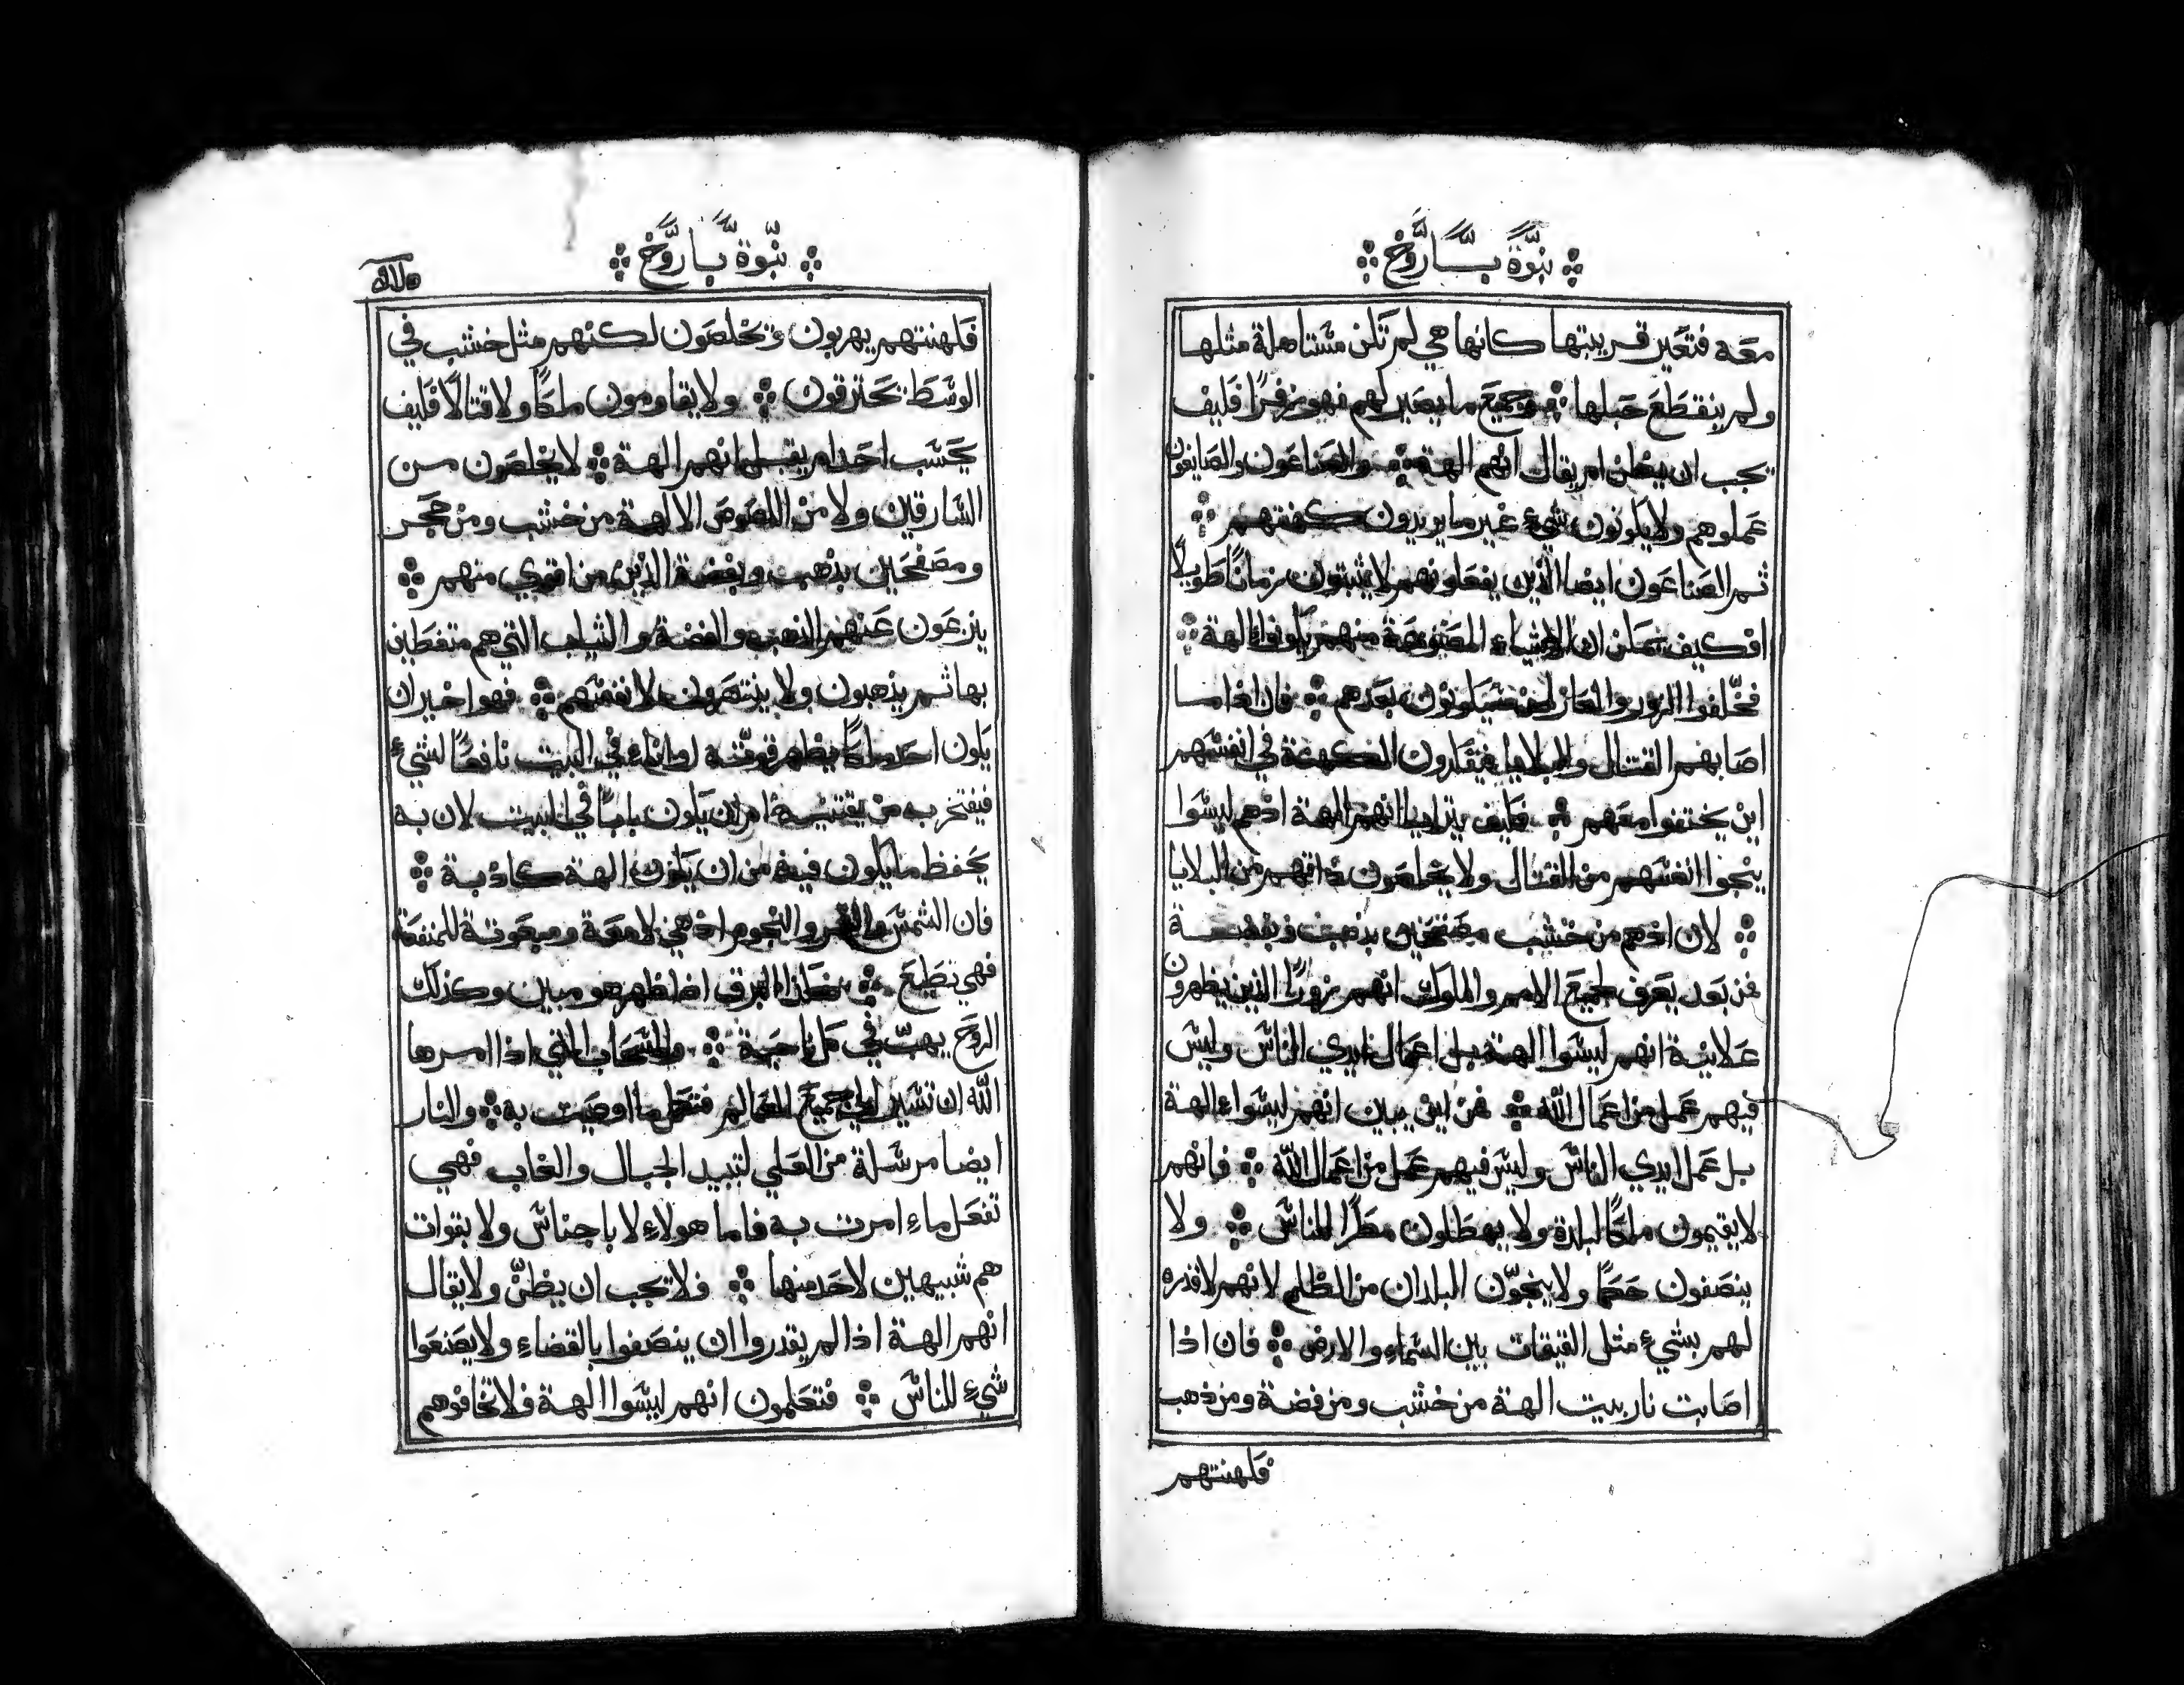 نبّوة بَارُوَخ
معَه فتعَير قريبتها كانها هي لم تَكن مسْتاهلة مثلها
ولم ينقطَعَ حَبلها وجميَع ما يصَير لهم فهو زفرًا فكيف
تجب ان يظن ام يقال انهم الهة والصَناعَون والصَايغون
عَملوهم ولا يكونون شيء غير ما يريدون كهنتهم
ثم الصَناعَون ايضا الذين يفعلونهم لا يثبتون زمانًا طَويلًا
افكيف تمكن ان الاشياء المصَنوعَة منهم يكونوا الهة
فخّلفوا الزور والعار لمن سَيكونون بعَدهم فان اذا ما
اصَابهم القتال والبلايا فيفتكرون الكهنة في انفسَهم
اين يختفوا معَهم فكيف يترايا انهم الهة اذهم ليسَوا
ينجوا انفسَهم من القتال ولا يخلصَون ذاتهم من البلايا
لان اذهم من خشب مصَفحَين بذهب وبفضة
فمن بعَد يَعَرف لجميَع الامم والملوك انهم زورًا الذين يظهرون
عَلانية انهم ليسَوا الهة بل اعمَال ايدي الناسَ وليسَ
فيهم عَمل من اعمَال اللّه فمن اين يبين انهم ليسَواء الهة
بل عَمل ايدي الناسَ وليسَ فيهم عَمل من اعمَال اللّه فانهم
لا يقيمون ملكًا لبلدة ولا يهطَلون مطَرًا للناسَ ولا
ينصَفون حَكمًا ولا ينجّون البلدان من الظلم لانهم لا قدره
لهم بشيء مثل القيقات بين السَماء والارض فان اذا
اصَابت نار بيت الهة من خشب ومن فضة ومن ذهب
فكهنتهم
نبّوة بَارُوَخ
فكهنتهم يهربون وتخلصَون لكنهم مثل خشب في
الوسَطَ تحَترقون ولا يقاومون ملكًا ولا قتالًا فكيف
يحَسَب احَد ام يقبل انهم الهة لا يخلصَون من
السَارقين ولا من اللصَوصَ الالهة من خشب ومن حَجَر
ومصَفحَين بذهب وبفضة الذين من اقوي منهم
ينزعَون عَنهم الذهب والفضة والثياب التي هم متغطَين
بها ثم يذهبون ولا ينتصَرون لانفسَهم فهو اخير ان
يكون احَد ملكًا يظهر قوّته او اناء في البيت نافعًا لشيء
فيفتخر به من يقتنيه ام ان يكون بابًا في البيت لان به
يحَفظ ما يكون فيه من ان يكون الهة كاذبة
فان الشمسَ والقمر والنجوم اذ هي لامعَة ومبعَوثة للمنفعَة
فهي تطَيعَ هكذا البرق اذا ظهر هو مبين وكذلك
الروَح يهبّ في كل ناحَية والسَحَاب التي اذا امرها
اللّه ان تسَير الي جميَع العَالم فتعمَل ما اوصَيت به والنار
ايضا مرسَلة من العَلي لتبيد الجبال والغاب فهي
تفعَل ماء امرت به فاما هولاء لا باجناسَ ولا بقوات
هم شبيهين لاحَد منها فلا تجب ان يظنّ ولا يقال
انهم الهة اذا لم يقدروا ان ينصَفوا بالقضاء ولا يصَنعَوا
شيء للناسَ فتعَلمون انهم ليسَوا الهة فلا تخافوهم